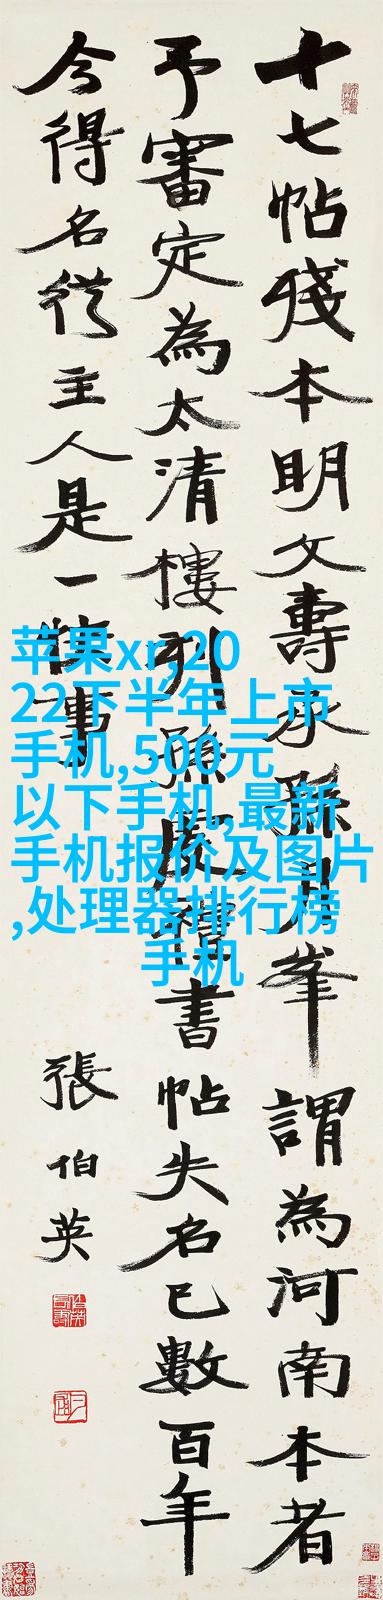 十七帖殘本明文壽承孫月峯謂為河南本者
予審定為太清樓刊孫虔禮書帖失名已數百年
今得名從主人是一快事
張伯英
苹果xr,20
22下半年上市
手机,500元
以下手机,最新
手机报价及图片
,处理器排行榜
手机